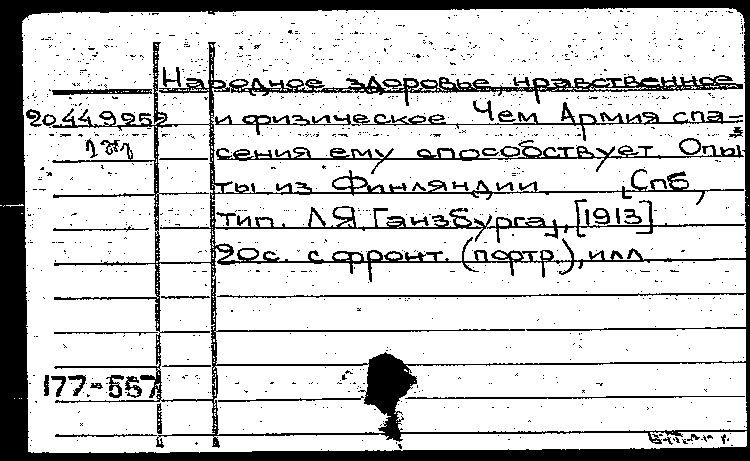 Народное здоровье, нравственное
20.44.9.252 и физическое. Чем Армия спа=
сения ему способствует. Опы=
ты из Финляндии. [Спб,
тип. Л.Я. Ганзбурга], [1913].
20с. с фронт. (портр.), илл.
177.-557